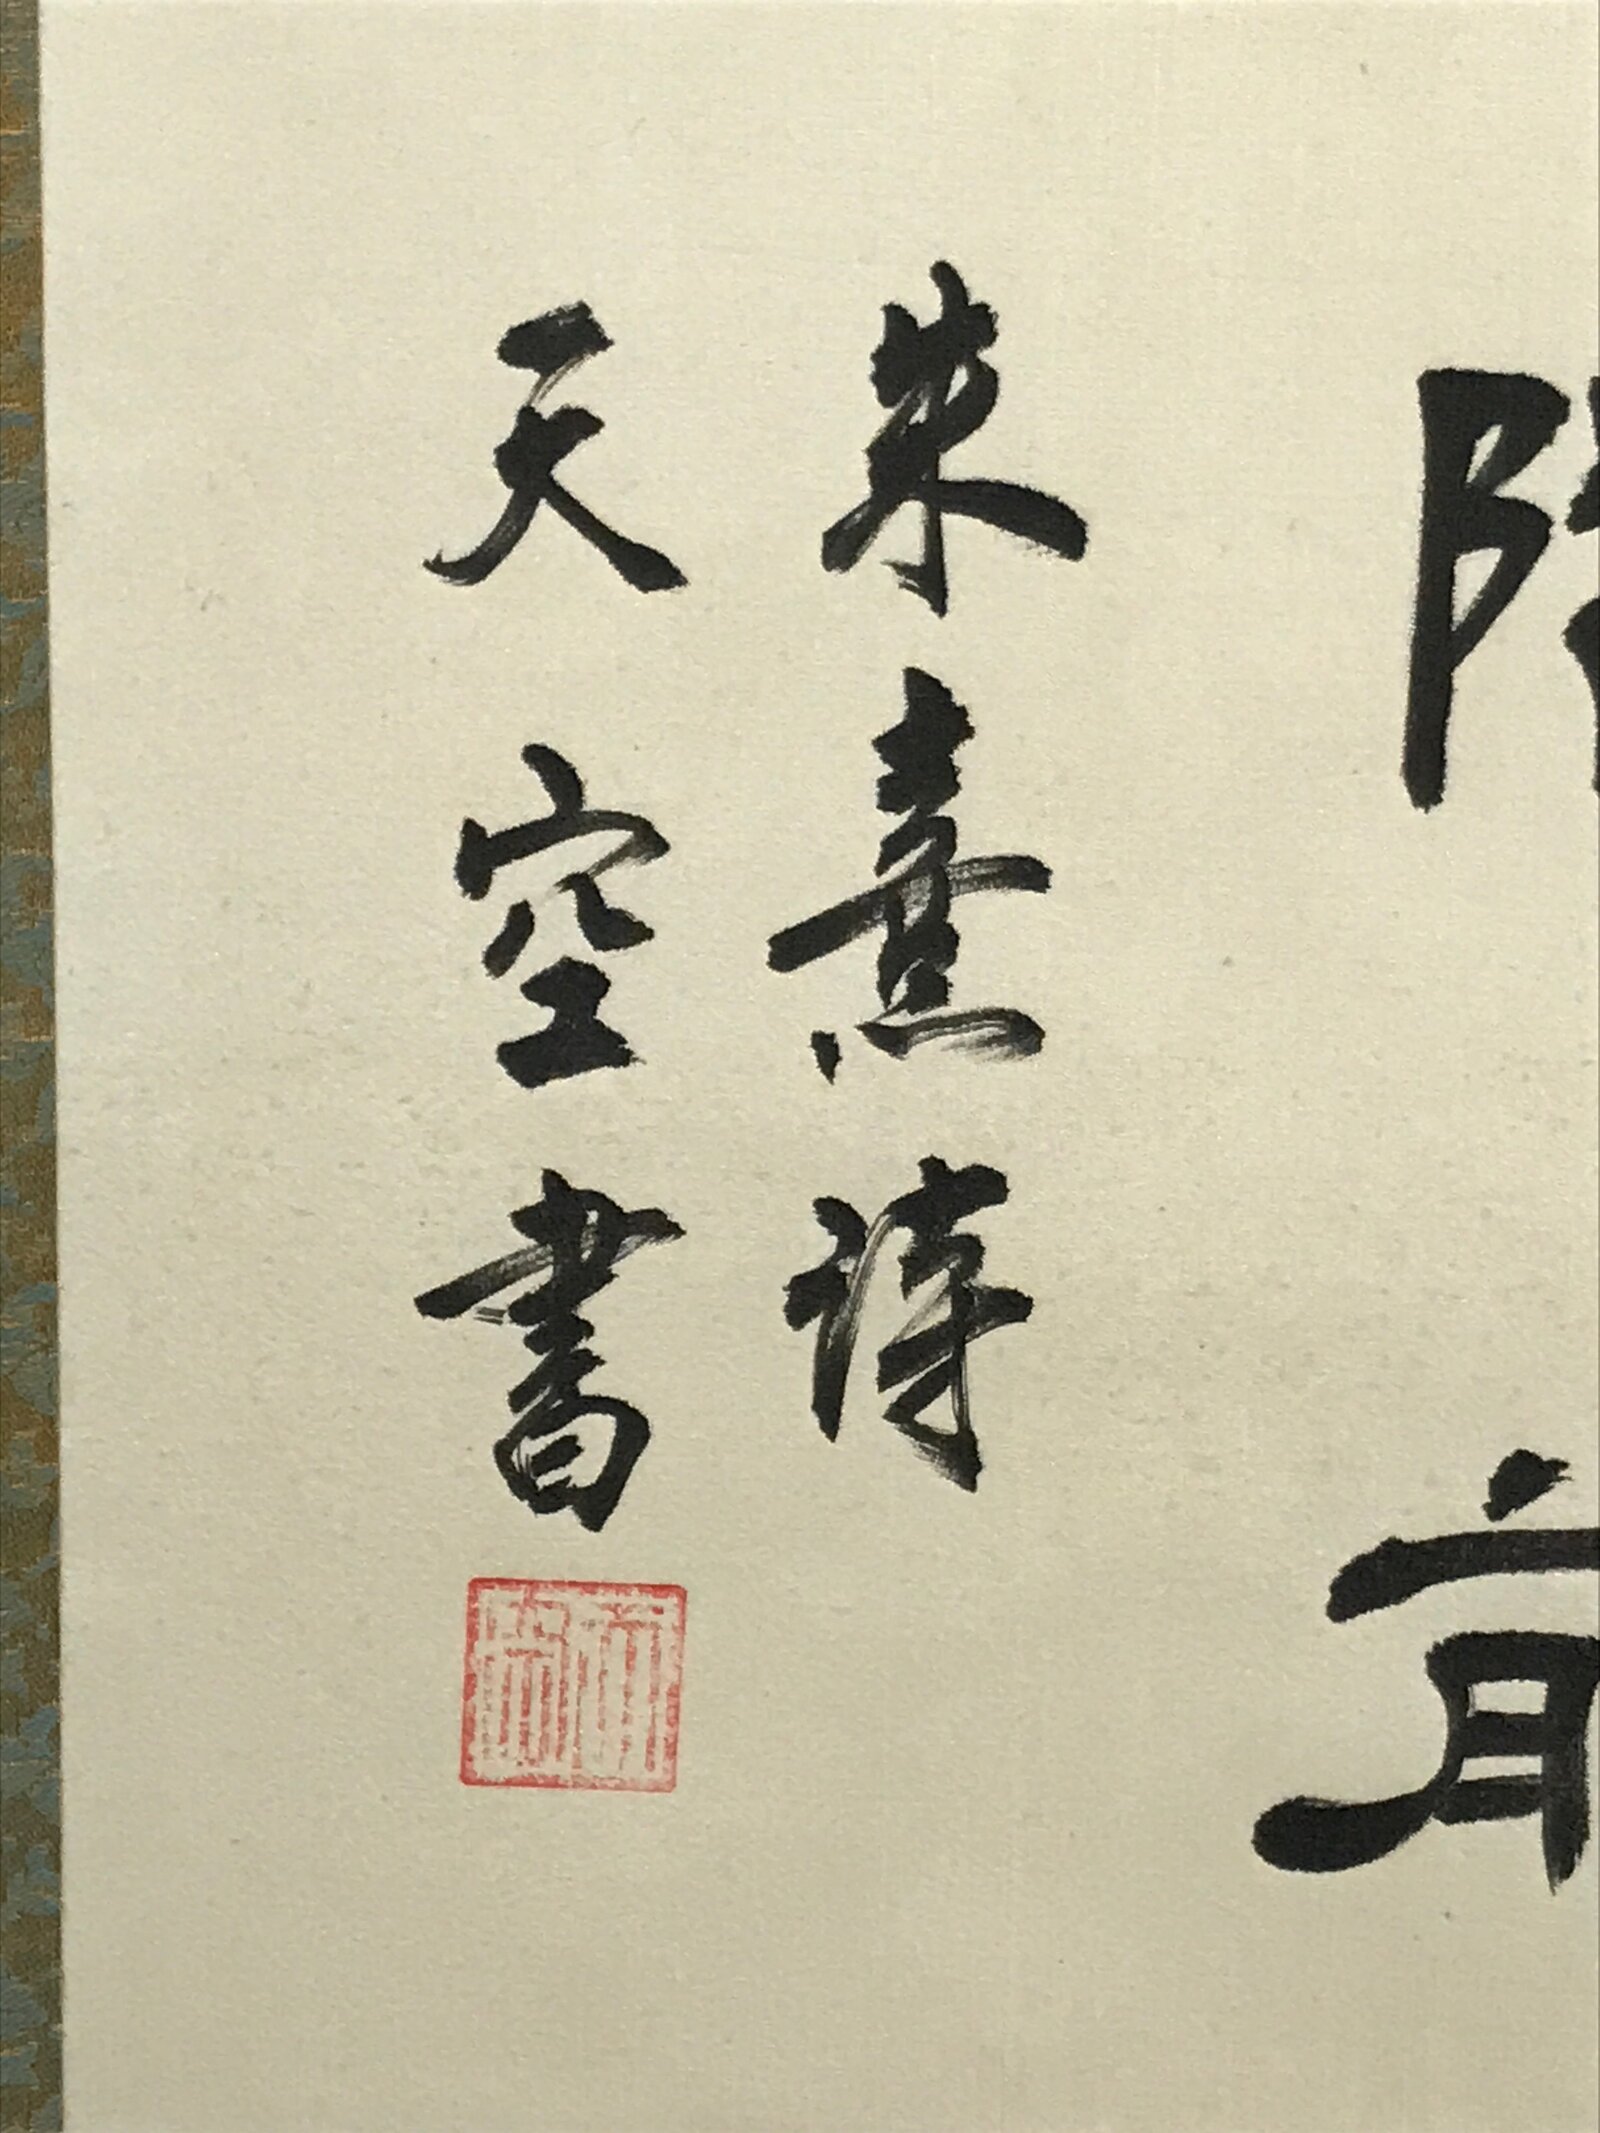 朱熹詩
天空書